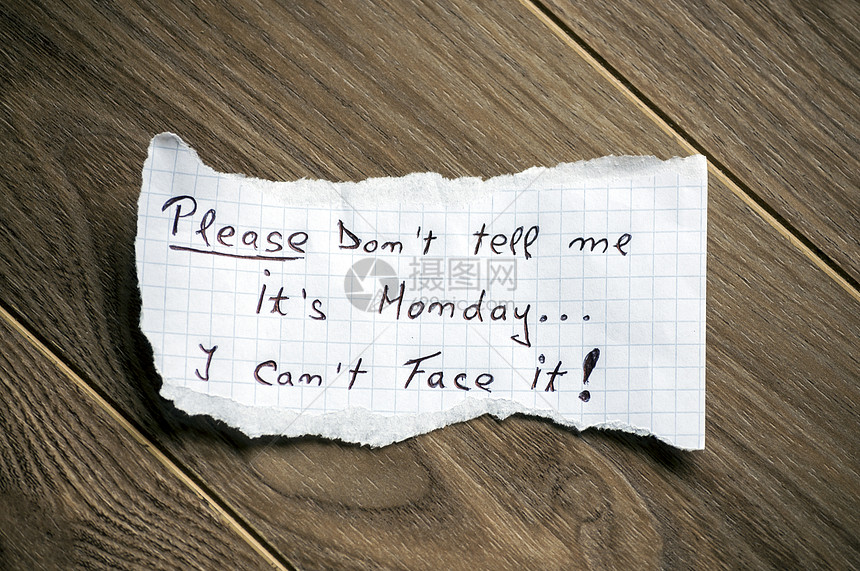 Please Don't tell me
it's Monday...
I can't Face it!
摄图网